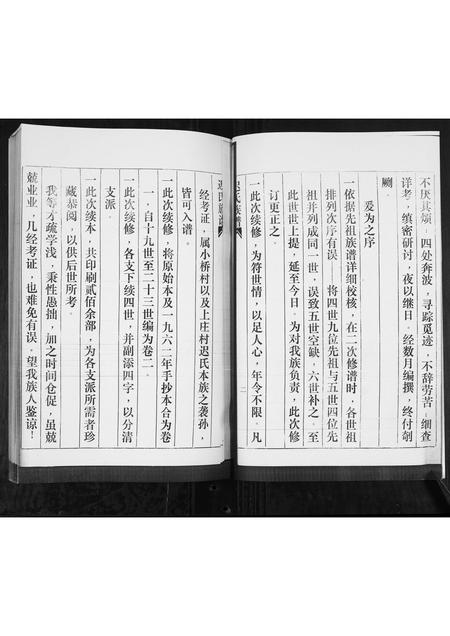 不厌其烦，四处奔波，寻踪觅迹，不辞劳苦。细查
详考，缜密研讨，夜以继日。经数月编撰，终付剞
劂
爰为之序
一依据先祖族谱详细校核，在二次修谱时，各世祖
排列次序有误——将四世九位先祖与五世四位先
祖并列成同一世，误致五世空缺，六世补之。至
此世世上提，延至今日。为对我族负责，此次修
订更正之。
一此次续修，为符世情，以足人心，年令不限。凡
迟氏族谱
二
迟氏族谱
经考证，属小桥村以及上庄村迟氏本族之袭孙，
皆可入谱。
一此次续修，将原始本及一九六二年手抄本合为卷
一，自十九世至二十三世编为卷二。
一此次续修，各支下续四世，并副添四字，以分清
支派。
一此次续本，共印刷贰佰余部，为各支派所需者珍
藏恭阅，以供后世所考。
我等才疏学浅，秉性愚拙，加之时间仓促，虽兢
兢业业，几经考证，也难免有误。望我族人鉴谅！